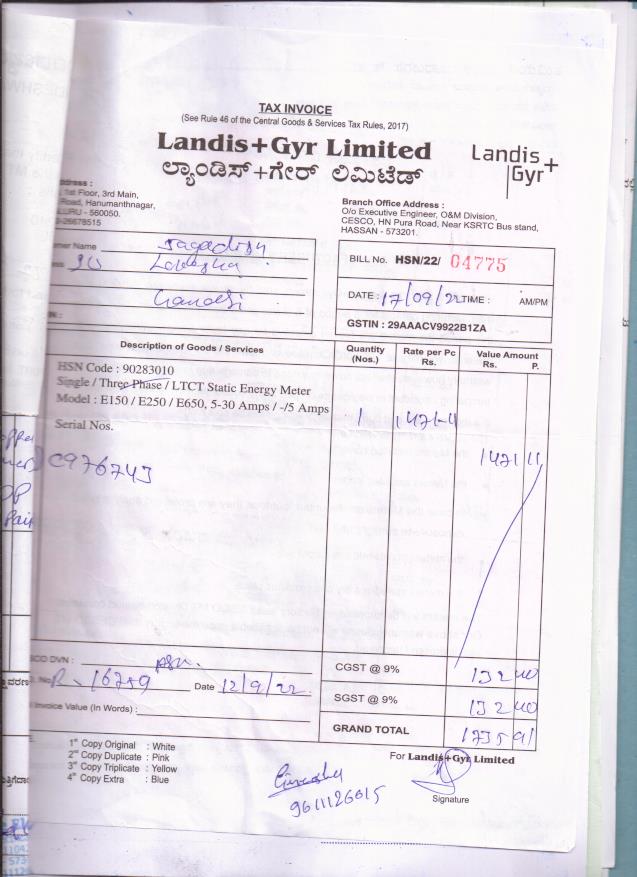 TAX INVOICE
(See Rule 46 of the Central Goods & Services Tax Rules, 2017)
Landis+Gyr Limited
ಲ್ಯಾಂಡಿಸ್+ಗೇರ್ ಲಿಮಿಟೆಡ್
Landis+
Gyr
1st Floor, 3rd Main,
Road, Hanumanthnagar,
- 560050.
-26678515
Branch Office Address :
O/o Executive Engineer, O&M Division,
CESCO, HN Pura Road, Near KSRTC Bus stand,
HASSAN - 573201.
Name
BILL No. HSN/22/ 04775
DATE : 17/09/22 TIME : AM/PM
GSTIN : 29AAACV9922B1ZA
Description of Goods / Services
Quantity (Nos.)
Rate per Pc Rs.
Value Amount Rs. P.
HSN Code : 90283010
Single / Three Phase / LTCT Static Energy Meter
Model : E150 / E250 / E650, 5-30 Amps / -/5 Amps
1
Serial Nos.
1471 11
DVN :
CGST @ 9% 132 40
R. 16759 Date 12/9/22
SGST @ 9% 132 40
Invoice Value (In Words) :
GRAND TOTAL 1735 91
1st Copy Original : White
2nd Copy Duplicate : Pink
3rd Copy Triplicate : Yellow
4th Copy Extra : Blue
For Landis+Gyr Limited
9611126015
Signature